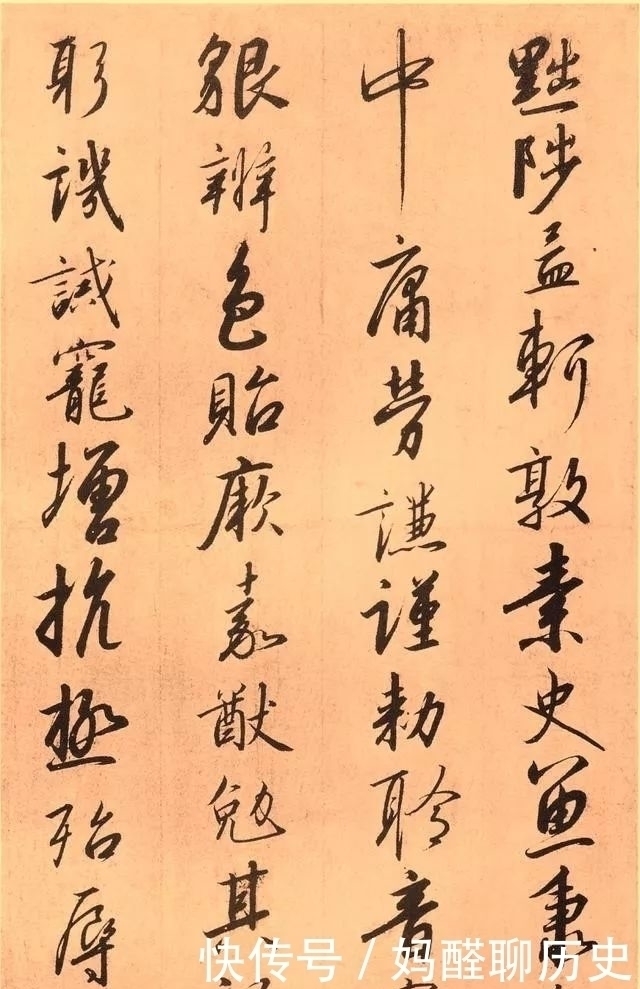 黜陟孟軻敦素史魚秉
中庸勞謙謹勅聆音
貌辨色貽厥嘉猷勉其
躬譏誡寵增抗極殆辱
快传号/妈醛聊历史